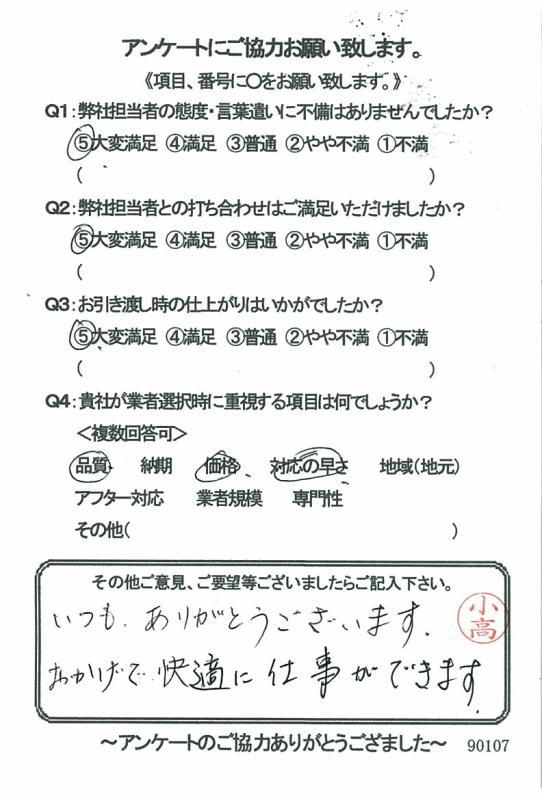 アンケートにご協力お願い致します。
《項目、番号に○をお願い致します。》
Q1：弊社担当者の態度・言葉遣いに不備はありませんでしたか？
⑤大変満足 ④満足 ③普通 ②やや不満 ①不満
(　)
Q2：弊社担当者との打ち合わせはご満足いただけましたか？
⑤大変満足 ④満足 ③普通 ②やや不満 ①不満
(　)
Q3：お引き渡し時の仕上がりはいかがでしたか？
⑤大変満足 ④満足 ③普通 ②やや不満 ①不満
(　)
Q4：貴社が業者選択時に重視する項目は何でしょうか？
＜複数回答可＞
品質 納期 価格 対応の早さ 地域(地元)
アフター対応 業者規模 専門性
その他(　)
その他ご意見、ご要望等ございましたらご記入下さい。
いつも、ありがとうございます。
小高
おかげで快適に仕事ができます。
～アンケートのご協力ありがとうござました～ 90107